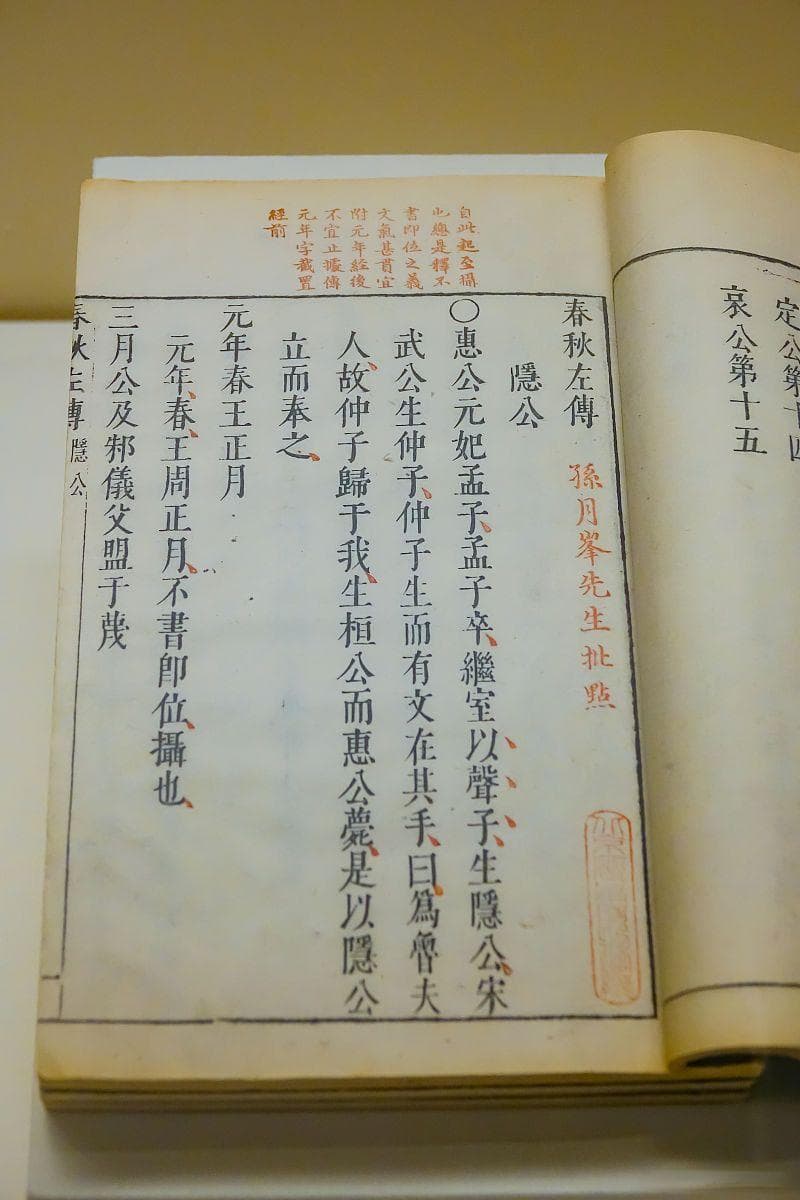 定公第十四
哀公第十五
自此起至攝
也總是釋不
書即位之義
文氣甚貫宜
附元年經後
不宜止據傳
元年字截置
經前
春秋左傳 孫月峯先生批點
隱公
○惠公元妃孟子孟子卒繼室以聲子生隱公宋
武公生仲子仲子生而有文在其手曰爲魯夫
人故仲子歸于我生桓公而惠公薨是以隱公
立而奉之
元年春王正月
元年春王周正月不書卽位攝也
三月公及邾儀父盟于蔑
春秋左傳 隱公 一